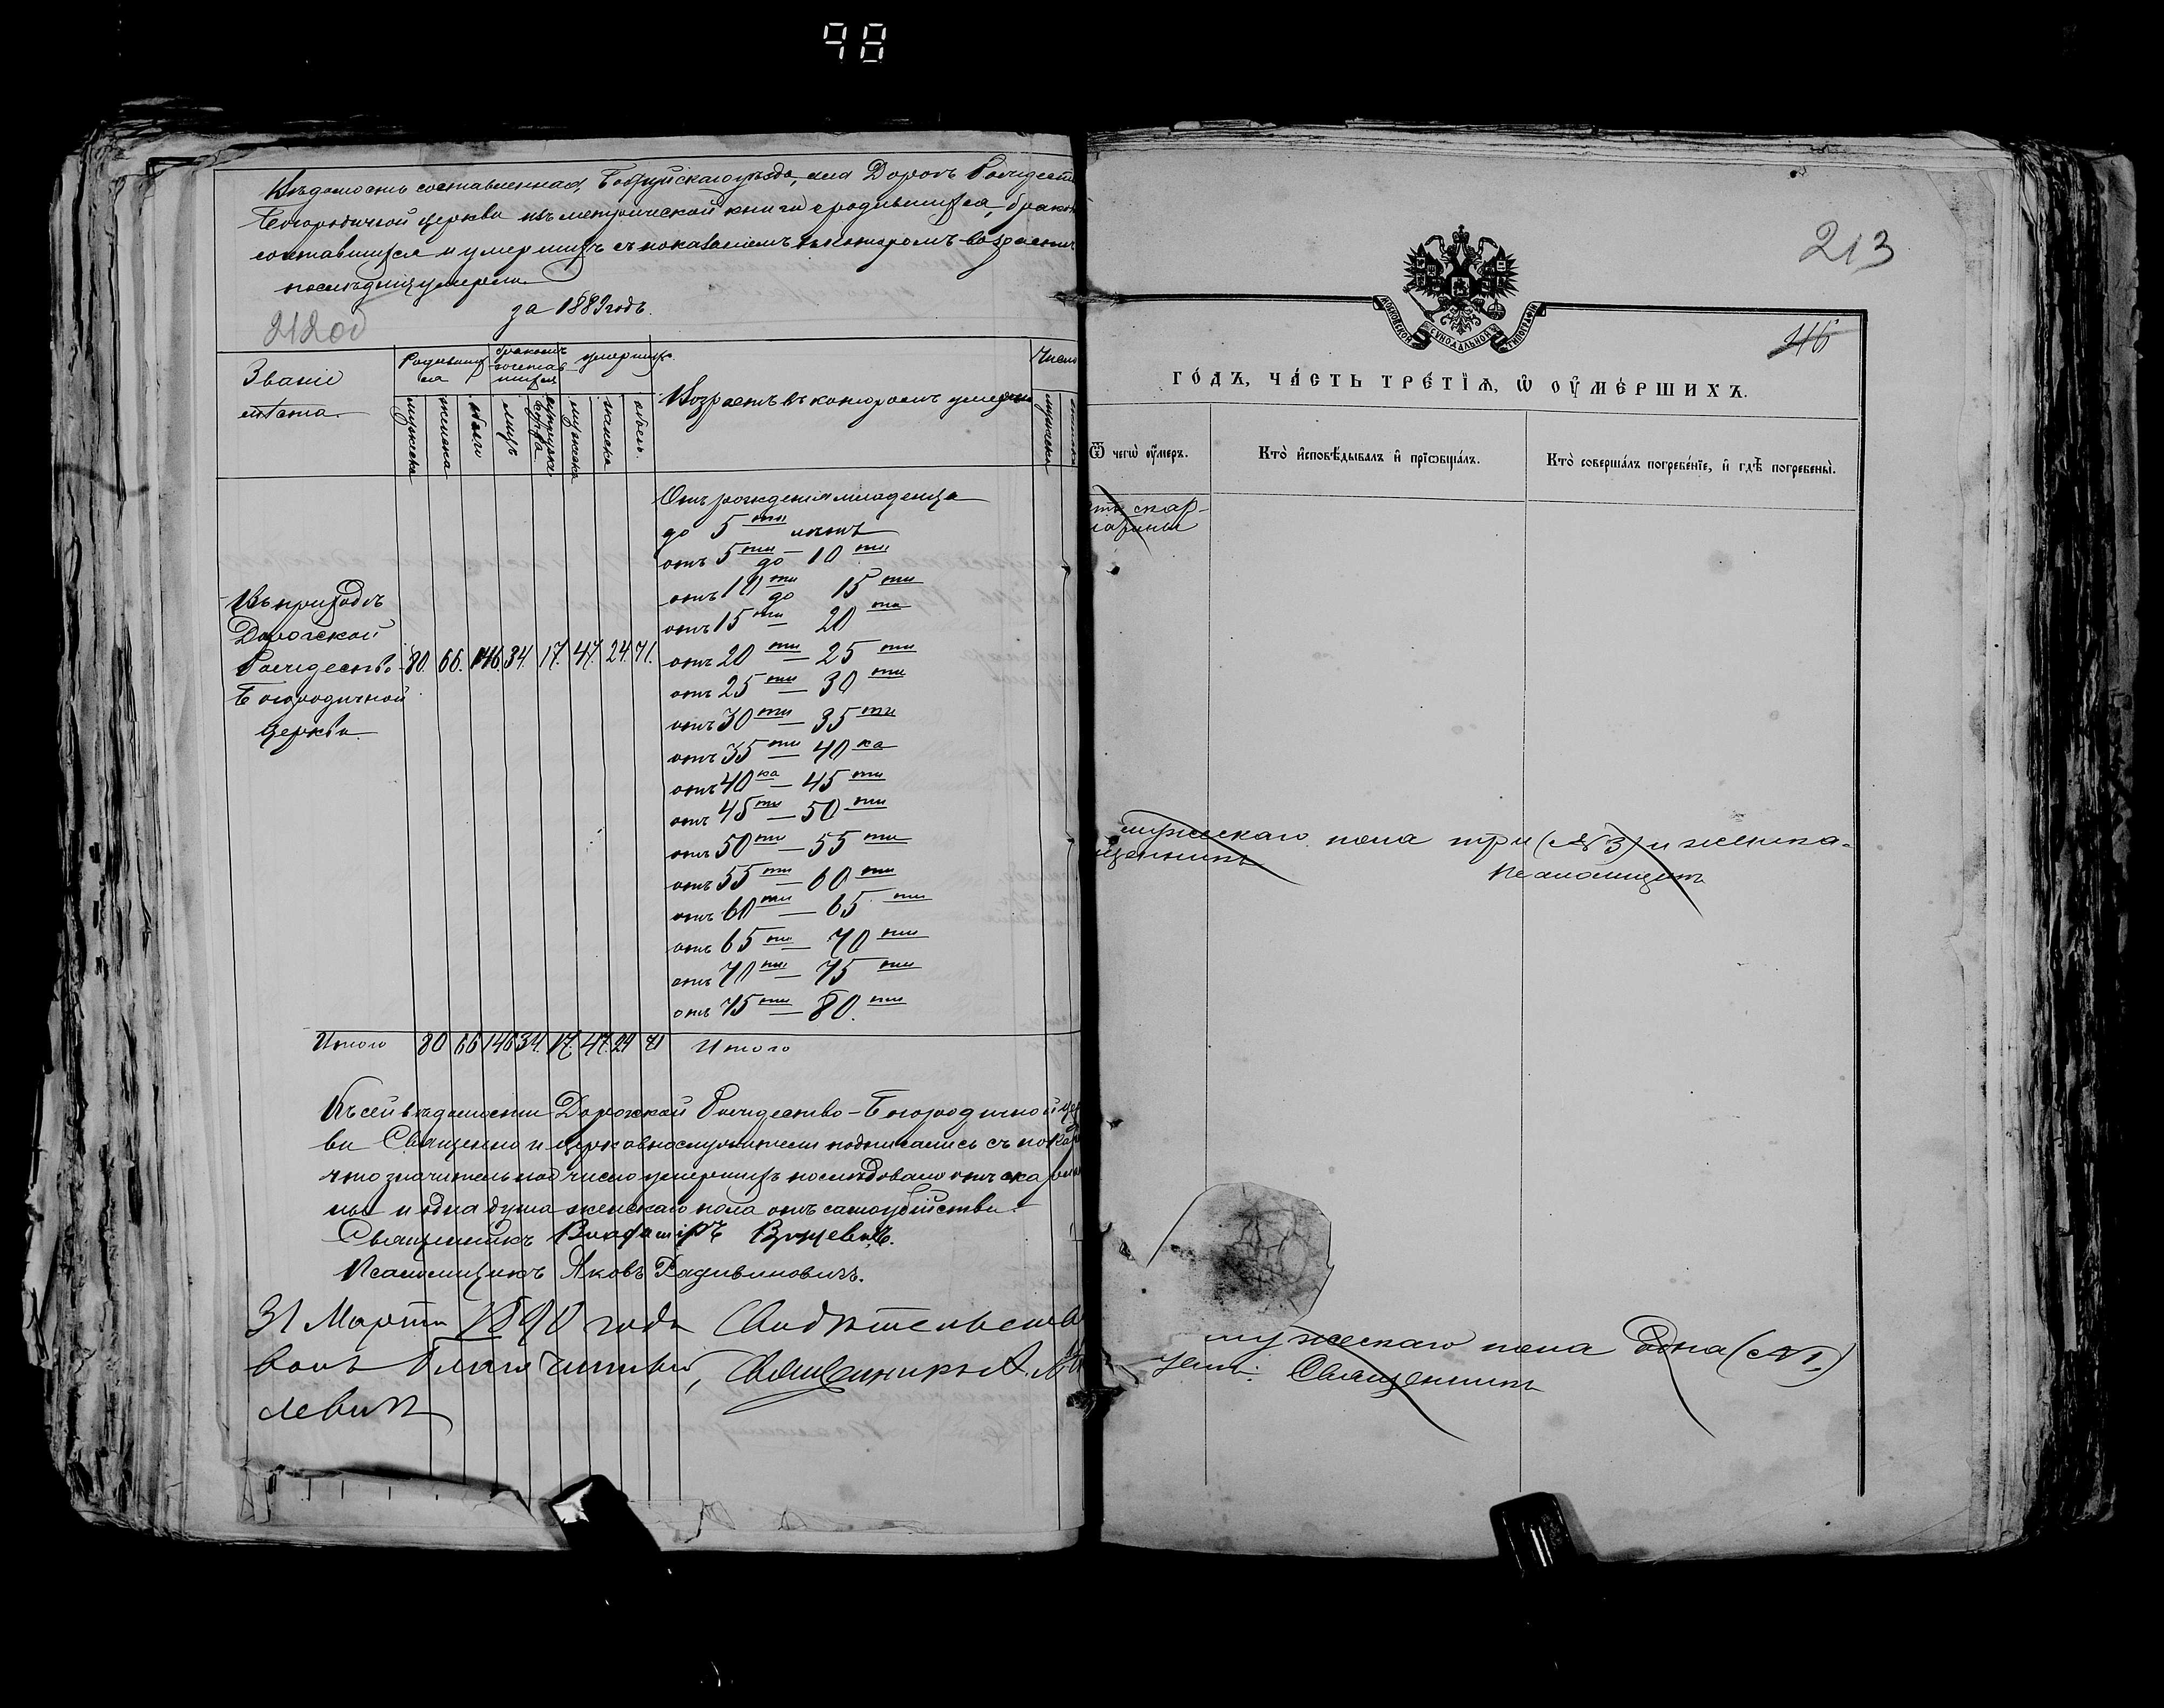 98
Вѣдомость составленная, Бобруйскаго уѣзда, села Дорогъ Рождество
Богородичной церкви изъ метрической книги о родившихся, бракомъ
сочетавшихся и умершихъ съ показаніемъ въ которомъ возрастѣ
послѣдніе умерли
за 1889 годъ.
212 об
Званіе мѣста.
Родившихся
бракомъ сочетавшихся
умершихъ.
Возрастъ въ которомъ умерли
Число
мужеска
женска
обоего
лицъ
супружества
мужеска
женска
обоего.
мужеска
Отъ рожденія младенца
до 5ти лѣтъ
отъ 5ти до 10ти
отъ 10ти до 15ти
отъ 15ти 20ти
Въ приходѣ
Дорогской
Рождество
Богородичной
церкви
80. 66. 146. 34. 17. 47. 24. 71.
отъ 20ти — 25ти
отъ 25ти — 30ти
отъ 30ти — 35ти
отъ 35ти — 40ка
отъ 40ка — 45ти
отъ 45ти — 50ти
отъ 50ти — 55ти
отъ 55ти — 60ти
отъ 60ти — 65ти
отъ 65ти — 70ти
отъ 70ти — 75ти
отъ 75ти — 80ти
Итого 80 66 146 34. 17. 47. 24 71 Итого
Къ сей вѣдомости Дорогской Рождество-Богородичной цер
ви Священно и церковнослужители подписались съ показ
что значительное число умершихъ послѣдовало отъ скарла
ны и одна душа женскаго пола отъ самоубійства.
Священникъ Владиміръ
Псаломщикъ Яковъ Радивиновичъ.
31 Марта 1890 года Свидѣтельство
валъ Благочинный, Священникъ А.
левичъ
213
46
МОСКОВСКОЙ СѴНОДАЛЬНОЙ ТИПОГРАФІИ
ГО́ДЪ, ЧА́СТЬ ТРЕ́ТЇѦ, Ѡ҆ ОУ҆МЕ́РШИХЪ.
Ѿ чегѡ̀ оу҆́меръ.
Кто̀ и҆сповѣ́дывалъ и҆ прїѡбща́лъ.
Кто̀ соверша́лъ погребе́нїе, и҆ гдѣ̀ погребены̀.
отъ скар-
латины
мужескаго пола три (№ 3) и женска-
щенникъ
Псаломщикъ
мужескаго пола одна (№ 1.)
Священникъ